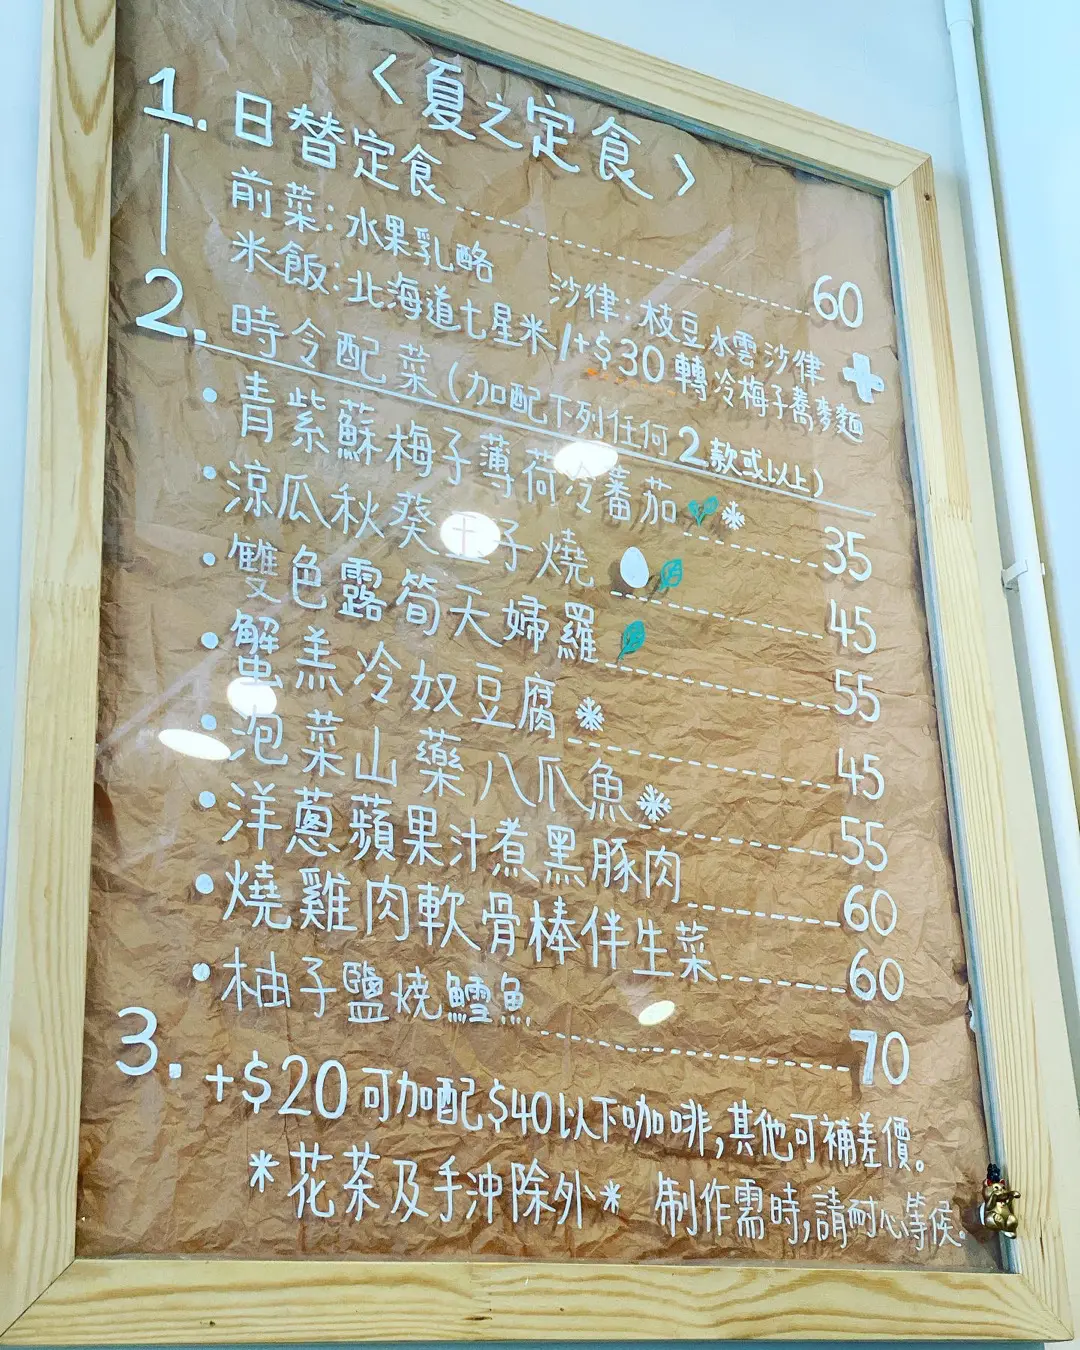 〈夏之定食〉
1. 日替定食 60
前菜：水果乳酪 沙律：枝豆水雲沙律
米飯：北海道七星米/+$30轉冷梅子蕎麥麵
2. 時令配菜(加配下列任何2款或以上)
• 青紫蘇梅子薄荷冷蕃茄 35
• 涼瓜秋葵玉子燒 45
• 雙色露筍天婦羅 55
• 蟹羔冷奴豆腐 45
• 泡菜山藥八爪魚 55
• 洋蔥蘋果汁煮黑豚肉 60
• 燒雞肉軟骨棒伴生菜 60
• 柚子鹽燒鱈魚 70
3. +$20可加配$40以下咖啡,其他可補差價。
*花茶及手沖除外* 制作需時,請耐心等侯。